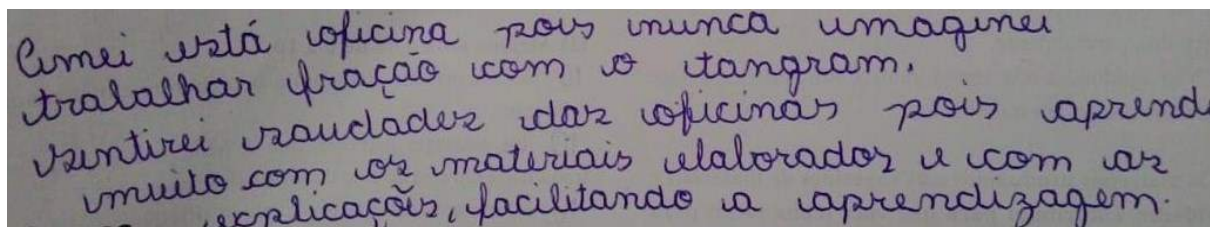 Amei está oficina pois nunca imaginei
trabalhar fração com o tangram.
Sentirei saudades das oficinas pois aprend
muito com os materiais elaborados e com as
explicações, facilitando a aprendizagem.